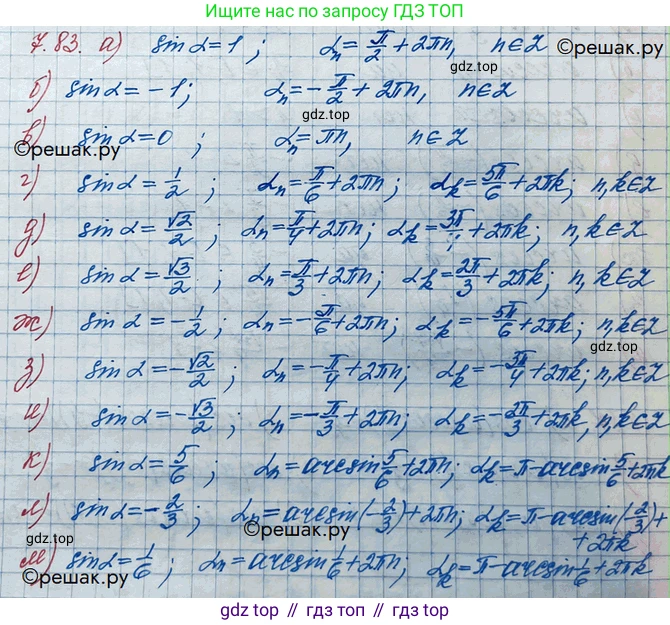 Ищите нас по запросу ГДЗ ТОП
7.83. а) sin α = 1 ; αₙ = π/2 + 2πn, n∈Z
©решак.ру
gdz top
б) sin α = -1; αₙ = -π/2 + 2πn, n∈Z
gdz top
в) sin α = 0 ; αₙ = πn, n∈Z
©решак.ру
г) sin α = 1/2 ; αₙ = π/6 + 2πn ; αₖ = 5π/6 + 2πk; n,k∈Z
gdz top
д) sin α = √2/2 ; αₙ = π/4 + 2πn; αₖ = 3π/4 + 2πk; n,k∈Z
е) sin α = √3/2 ; αₙ = π/3 + 2πn; αₖ = 2π/3 + 2πk; n,k∈Z
ж) sin α = -1/2 ; αₙ = -π/6 + 2πn; αₖ = -5π/6 + 2πk; n,k∈Z
gdz top
з) sin α = -√2/2 ; αₙ = -π/4 + 2πn; αₖ = -3π/4 + 2πk; n,k∈Z
и) sin α = -√3/2 ; αₙ = -π/3 + 2πn; αₖ = -2π/3 + 2πk, n,k∈Z
к) sin α = 5/6 ; αₙ = arcsin 5/6 + 2πn; αₖ = π - arcsin 5/6 + 2πk
gdz top
л) sin α = -2/3 ; αₙ = arcsin(-2/3) + 2πn; αₖ = π - arcsin(-2/3) +
+ 2πk
©решак.ру
м) sin α = 1/6 ; αₙ = arcsin 1/6 + 2πn; αₖ = π - arcsin 1/6 + 2πk
©решак.ру
gdz top
gdz top // гдз топ // gdz.top